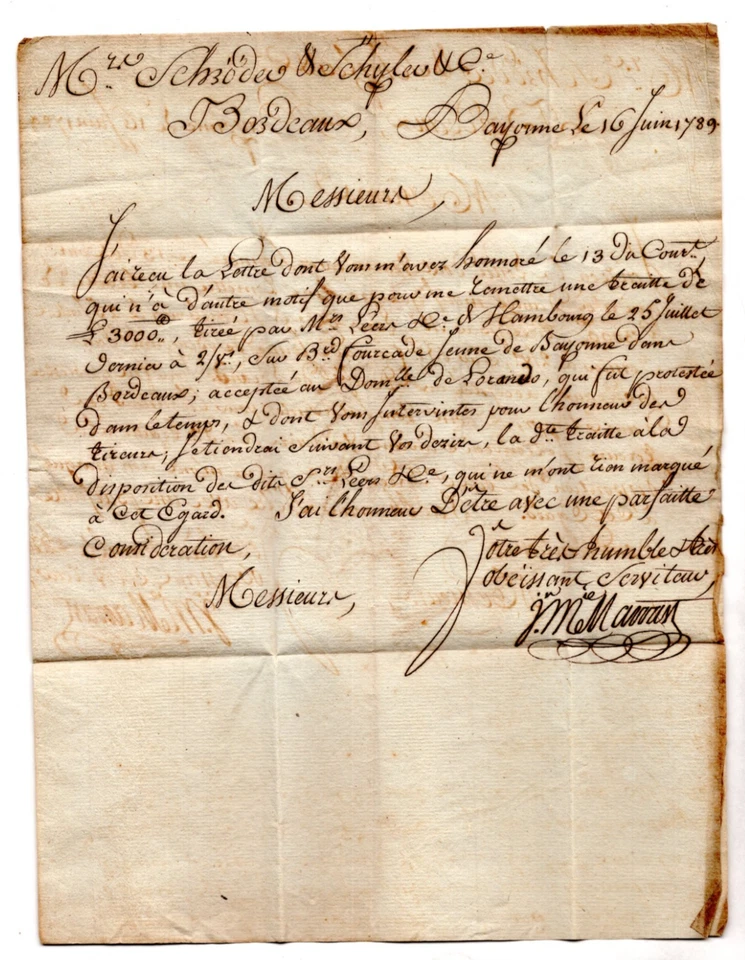 Mrs Schröder & Schyler & Ce
Bordeaux, Bayonne Le 16 Juin 1789
Messieurs,
J'ai recu la Lettre dont Vous m'avez honnoré le 13 du Cour.t,
qui n'à d'autre motif que pour me remettre une traitte de
£ 3000.., tirée par Mrs Léers & Ce d'Hambourg le 25 Juillet
dernier à 2/Us., Sur B.rd Fourcade Jeune de Bayonne dans
Bordeaux; acceptée au Dom.lle de Lorando, qui fut protestée
dans le temps, & dont Vous Intervintes pour l'honneur des
tireurs; Je tiendrai Suivant Vos dezirs, la d.te traitte à la
disposition des dits Srs Léers & Ce, qui ne m'ont rien marqué
à Cet Egard. J'ai l'honneur D'être avec une parfaitte
Considération,
Votre très humble & très
obéissant Serviteur,
Messieurs,